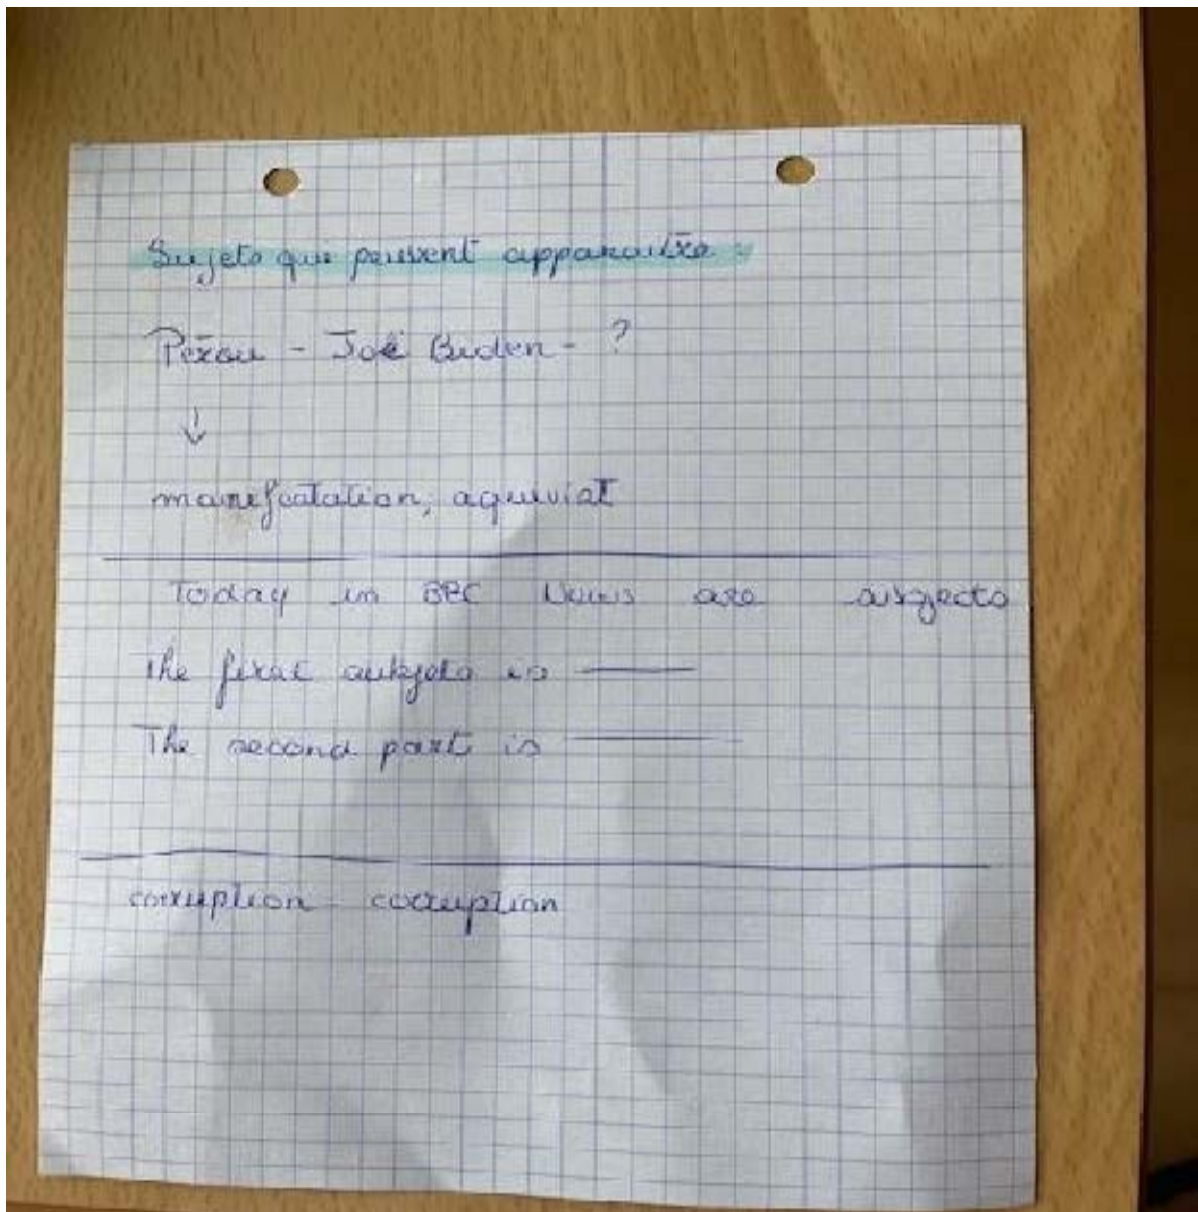 Sujets qui peuvent apparaitre :
Pérou - Joé Biden - ?
↓
manifestation,
Today in BBC News are subjects
The first subjets is ———
The second part is ———
corruption - corruption